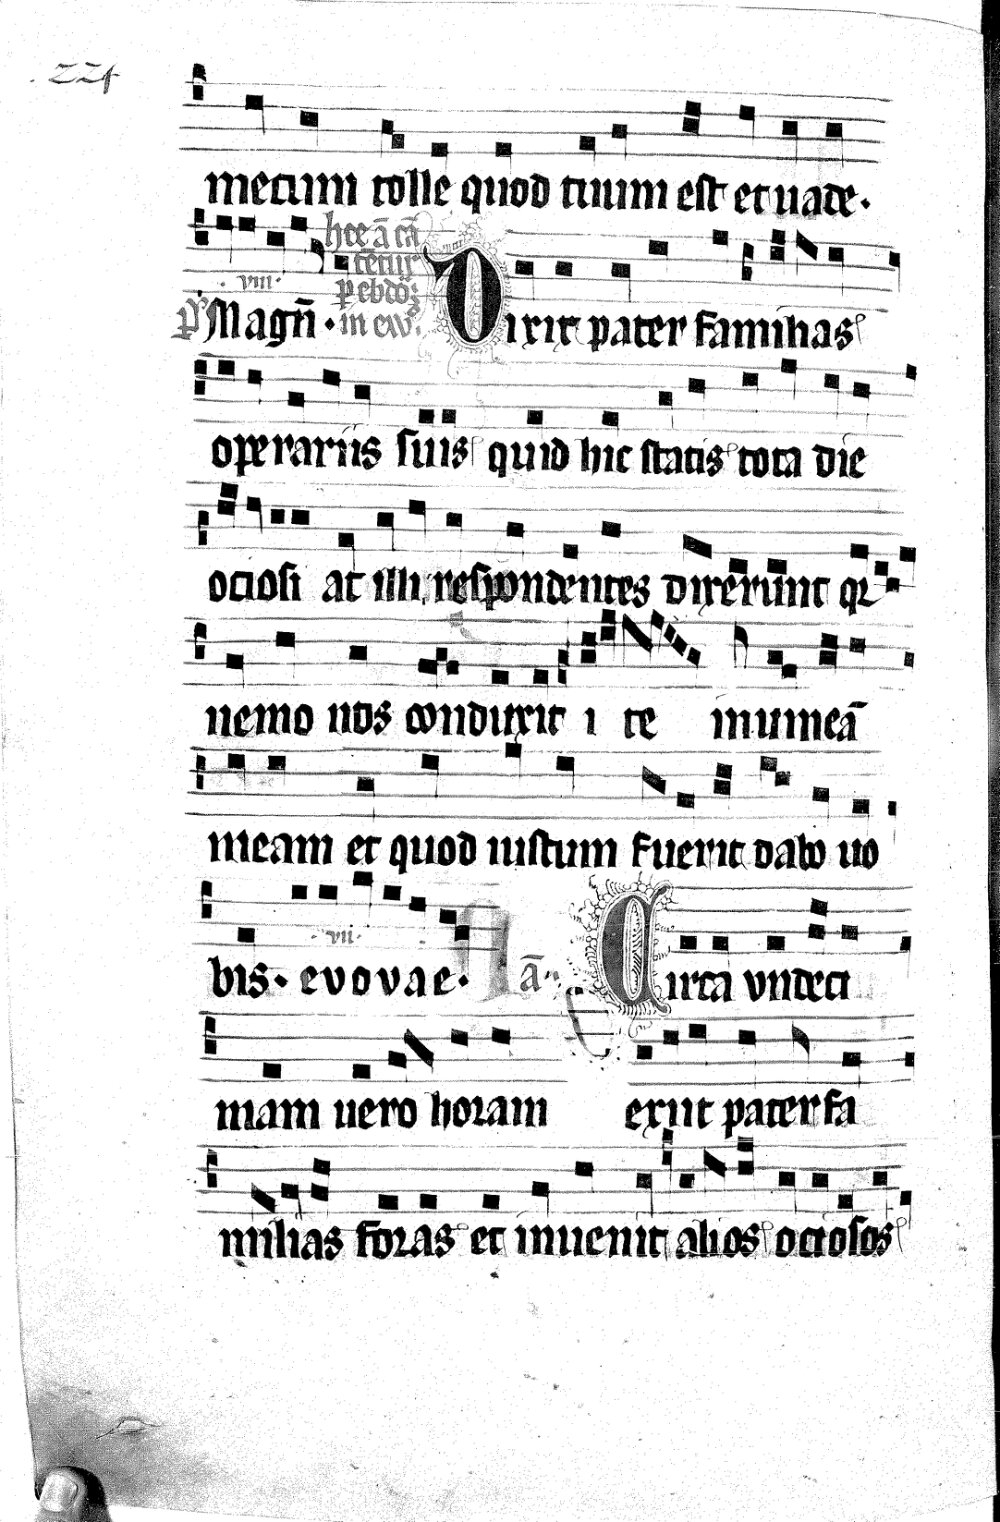 224
mecum tolle quod tuum est et uade.
hee ā cā
tētur
.viii.
p ebdō
ps Magn̄. in ew. Dixit pater familias
operariis suis quid hic statis tota die
ociosi at illi respondentes dixerunt qr
nemo nos conduxit i te in uineā
meam et quod iustum fuerit dabo uo
.vii.
bis. evovae. ā. Circa undeci
mam uero horam exiit pater fa
milias foras et inuenit alios ociosos